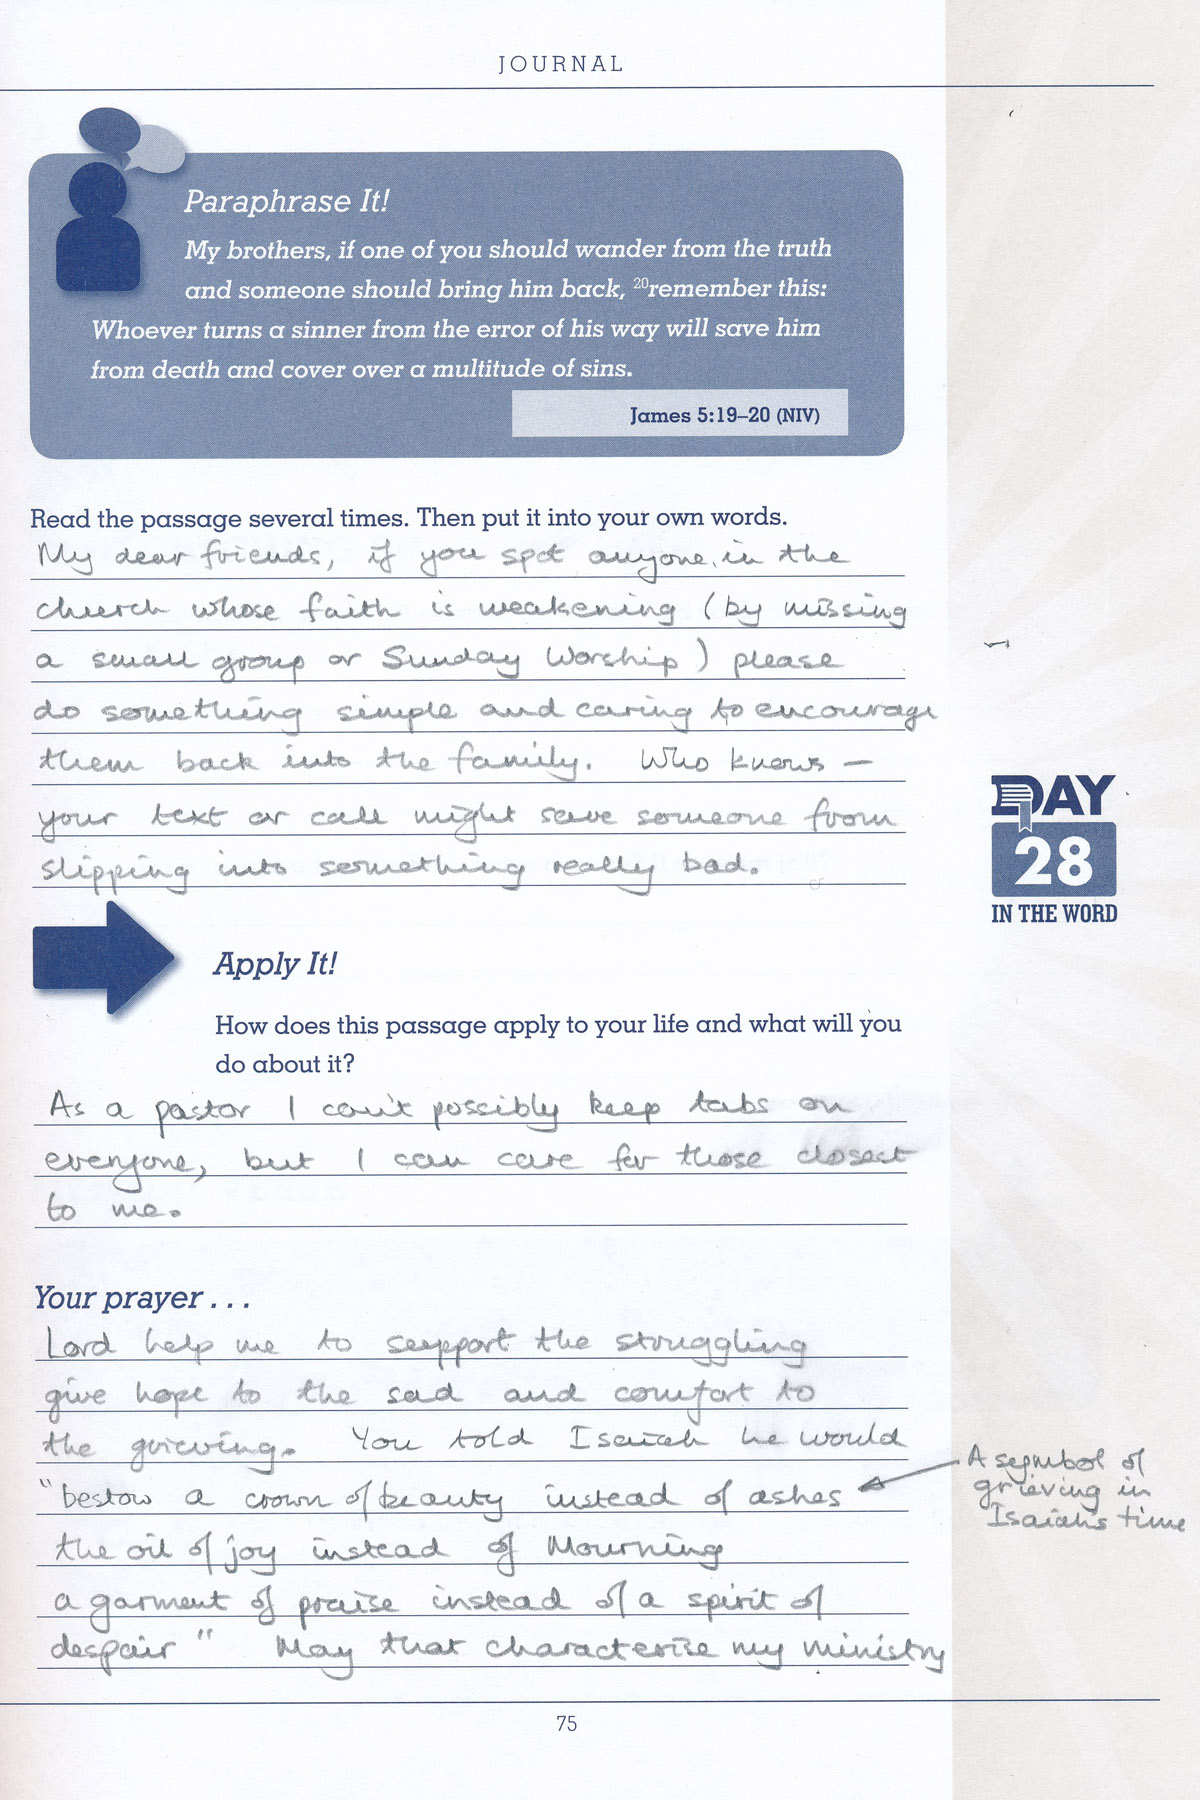 JOURNAL
Paraphrase It!
My brothers, if one of you should wander from the truth
and someone should bring him back, ²⁰remember this:
Whoever turns a sinner from the error of his way will save him
from death and cover over a multitude of sins.
James 5:19–20 (NIV)
Read the passage several times. Then put it into your own words.
My dear friends, if you spot anyone in the
church whose faith is weakening (by missing
a small group or Sunday Worship) please
do something simple and caring to encourage
them back into the family. Who knows –
your text or call might save someone from
slipping into something really bad.
DAY
28
IN THE WORD
Apply It!
How does this passage apply to your life and what will you
do about it?
As a pastor I can't possibly keep tabs on
everyone, but I can care for those closest
to me.
Your prayer . . .
Lord help me to support the struggling
give hope to the sad and comfort to
the grieving. You told Isaiah he would
"bestow a crown of beauty instead of ashes
A symbol of
grieving in
Isaiah's time
the oil of joy instead of Mourning
a garment of praise instead of a spirit of
despair" May that characterise my ministry
75